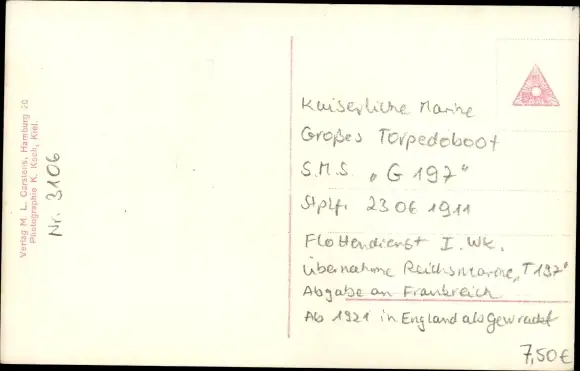 Verlag M. L. Carstens, Hamburg 20
Photographie K. Koch, Kiel.
Nr. 3106
Kaiserliche Marine
Großes Torpedoboot
S.M.S. „G 197“
Stplf. 23 06 1911
Flottendienst I. Wk.
Übernahme Reichsmarine „T 197“
Abgabe an Frankreich
Ab 1921 in England abgewrackt
7,50€